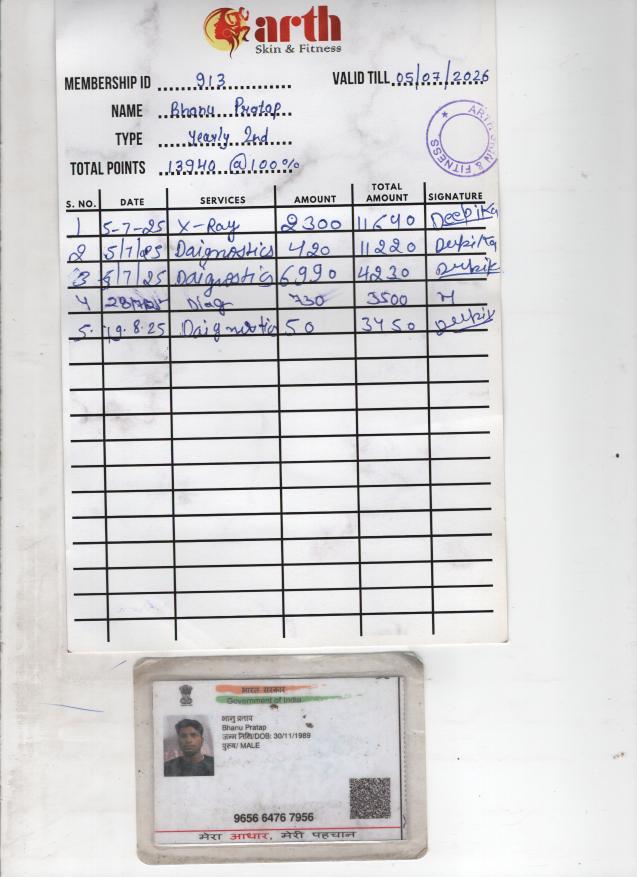 arth
Skin & Fitness
MEMBERSHIP ID 913 VALID TILL 05/07/2026
NAME Bhanu Pratap
TYPE Yearly 2nd
TOTAL POINTS 13940 @100%
ARTH SKIN & FITNESS
S. NO. DATE SERVICES AMOUNT TOTAL AMOUNT SIGNATURE
1 5-7-25 X-Ray 2300 11640 Deepika
2 5/7/25 Daignostics 420 11220 Deepika
3 5/7/25 Daignostics 6990 4230
4 Diag 730 3500
5. 19.8.25 Daignostic 50 3450
भारत सरकार
Government of India
भानु प्रताप
Bhanu Pratap
जन्म तिथि/DOB: 30/11/1989
पुरुष/ MALE
9656 6476 7956
मेरा आधार, मेरी पहचान